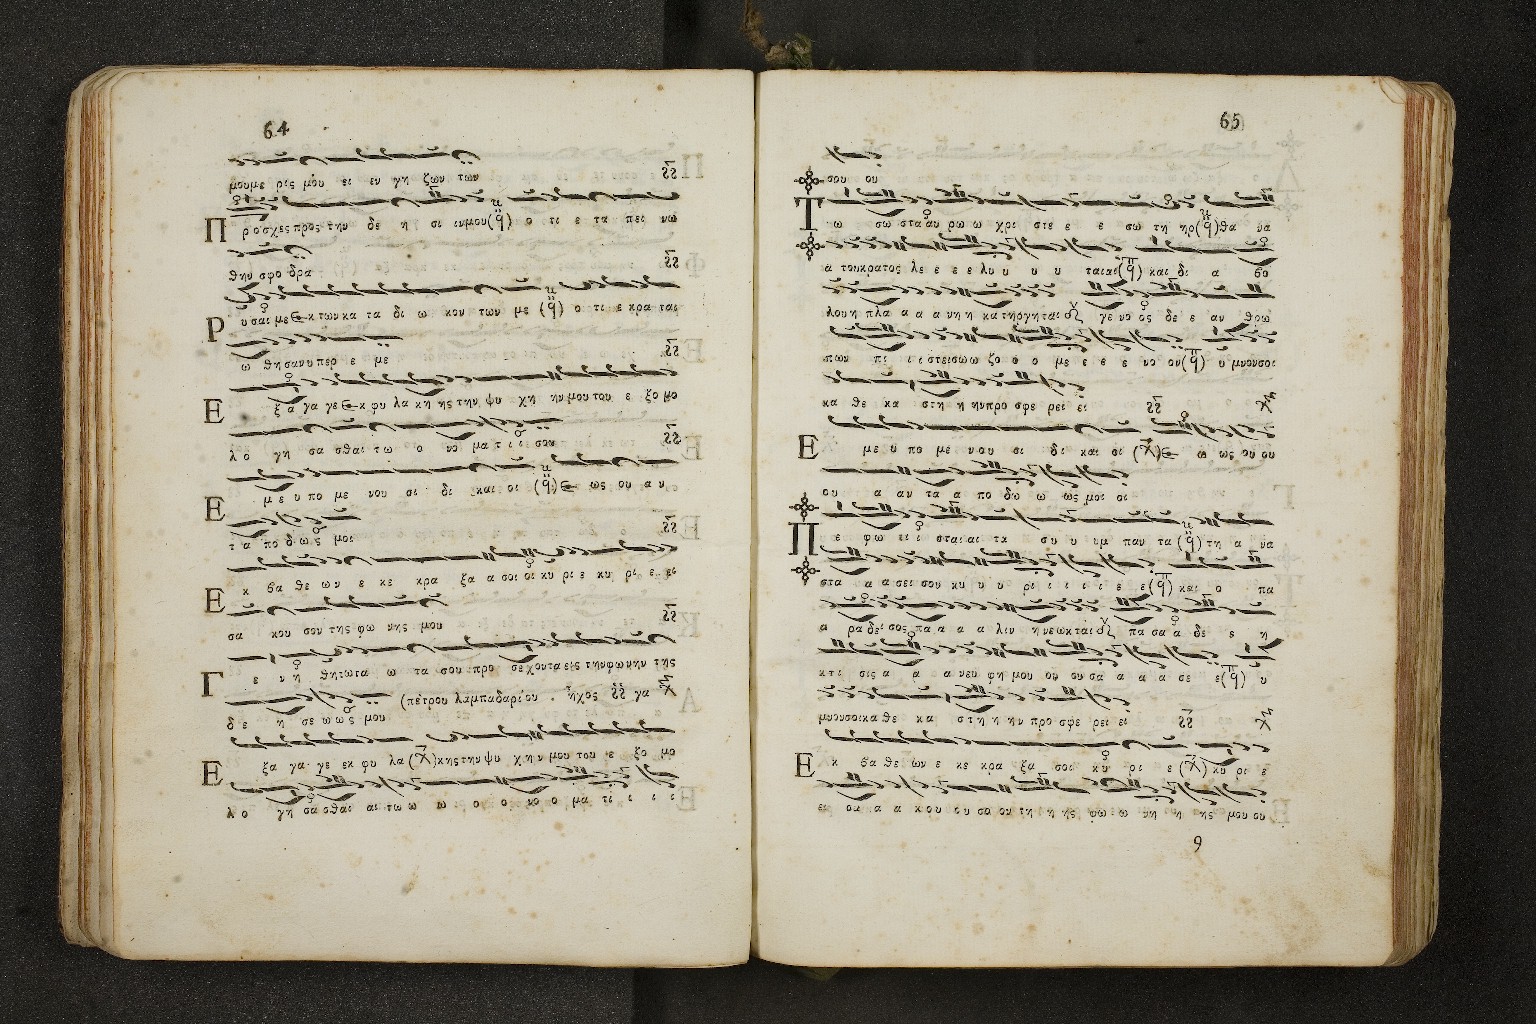 64
μουμε ρις μου ει εν γη ζων των
Π ρο σχες προς την δε η σι ινμου(q̈) ο τι ε τα πει νω
θην σφο δρα
Ρ υσαι με εκ των κα τα δι ω κον των με (q̈) ο τι ε κρα ται
ω θη σαν υπερ ε με
Ε ξα γα γε εκ φυ λα κη ης την ψυ χη ην μου του ε ξο μο
λο γη σα σθαι τω ο νο μα τι ι ι σου
Ε με υ πο με νου σι δι και οι (q̈) ε ως ου αν
τα πο δως μοι
Ε κ βα θε ων ε κε κρα ξα α σοι οι κυ ρι ε κυ ρι ε ει
σα κου σον της φω νης μου
Γ ε νη θητωτα ω τα σου προ σε χοντα εις την φωνην της
(πέτρου λαμπαδαρίου . ἦχος γα
δε η σε ω ως μου
Ε ξα γα γε εκ φυ λα (χ) κης την ψυ χην μου του ε ξο μο
λο γη σα σθαι αι τω ω ω ο ο νο ο μα τι ι ι ι
65
σου ου
Τ ω σω σταυ ρω ω χρι στε ε ε σω τη ηρ(q̈)θα να
α του κρατος λε ε ε ε λυ υ υ υ ται αι (q̈) και δι α βο
λου η πλα α α α νη η κα τηργηται γε νο ος δε ε αν θρω
πων πι ι ι στει σω ω ζο ο ο με ε ε ε νο ον (q̈) υ μνουσοι
κα θε κα στη η ην προ σφε ρει ει
Ε με υ πο με νου σι δι και οι (χ) ε ω ως ου ου
ου α αν τα α πο δω ω ως μοι οι
Π ε φω ει ι σται αι τα συ υ υμ παν τα (q̈) τη α να
στα α α σει σου κυ υ υ ρι ι ι ι ι ε ε (q̈) και ο πα
α ρα δει σος πα α α α λιν η νεωκται πα σα α δε ε η
κτι σις α α α νευ φη μου ου ου σα α α α σε ε (q̈) υ
μνον σοι κα θε κα στη η ην προ σφε ρει ει
Ε κ βα θε ων ε κε κρα ξα σοι κυ ρι ε (χ) κυ ρι ε
ει σα α α κου ου σο ον τη η ης φω ω νη η ης μου ου
9